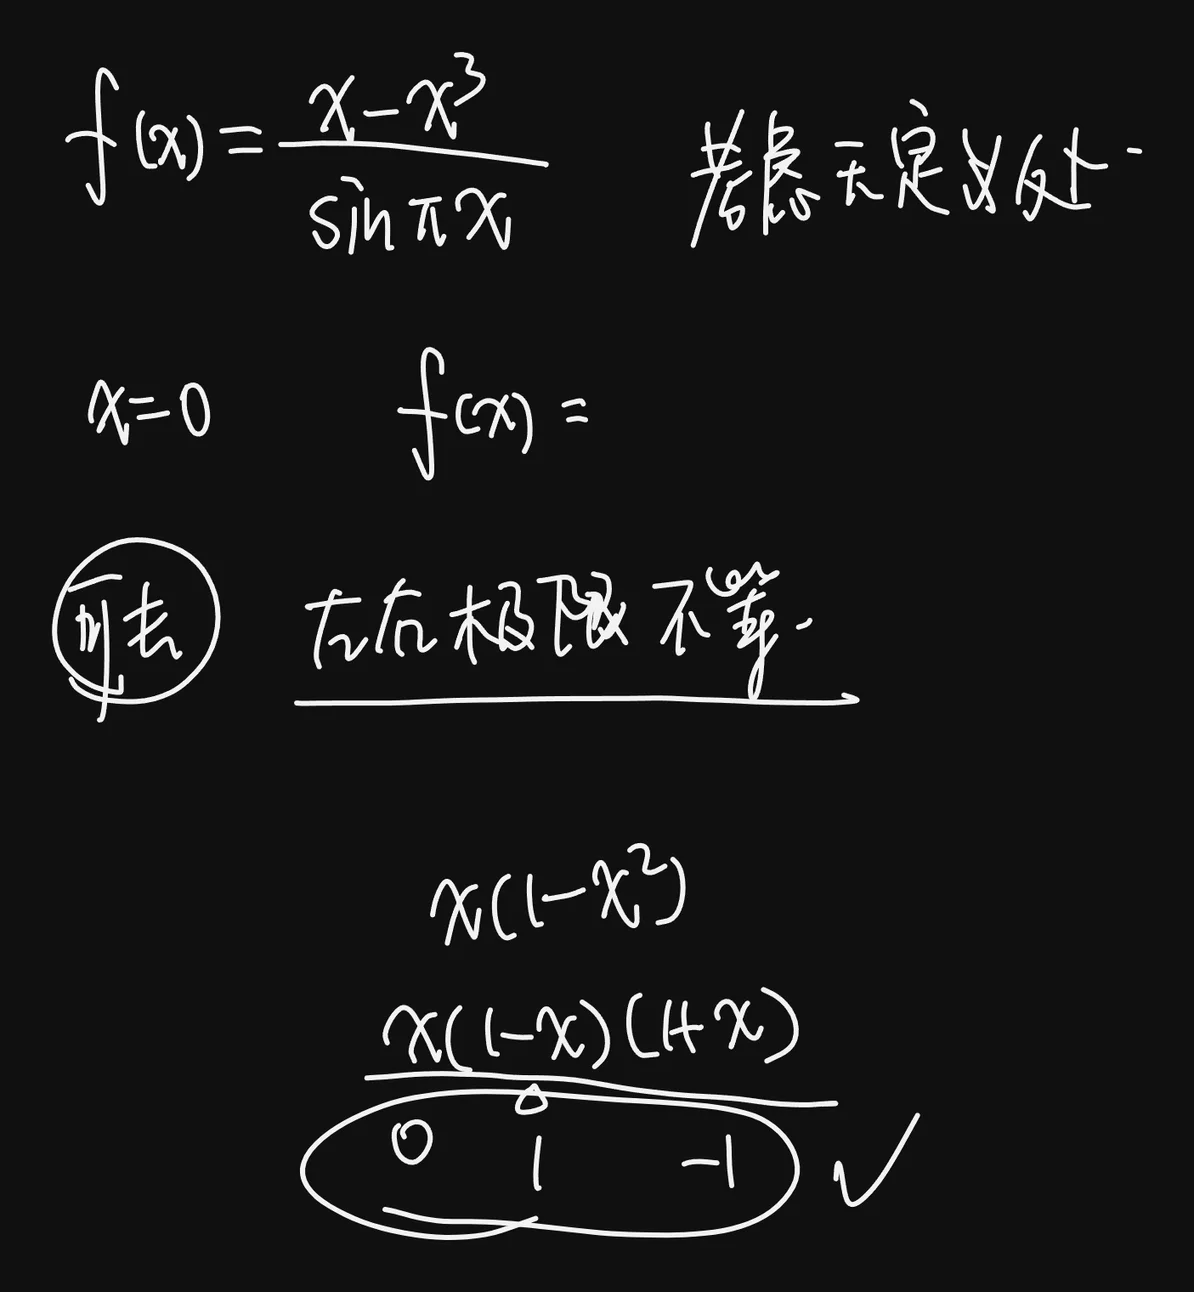 f(x) = (x-x³)/(sin πx) 考虑无定义处.
x=0 f(x) =
可去 左右极限不等.
x(1-x²)
x(1-x)(1+x)
0 1 -1 ✓